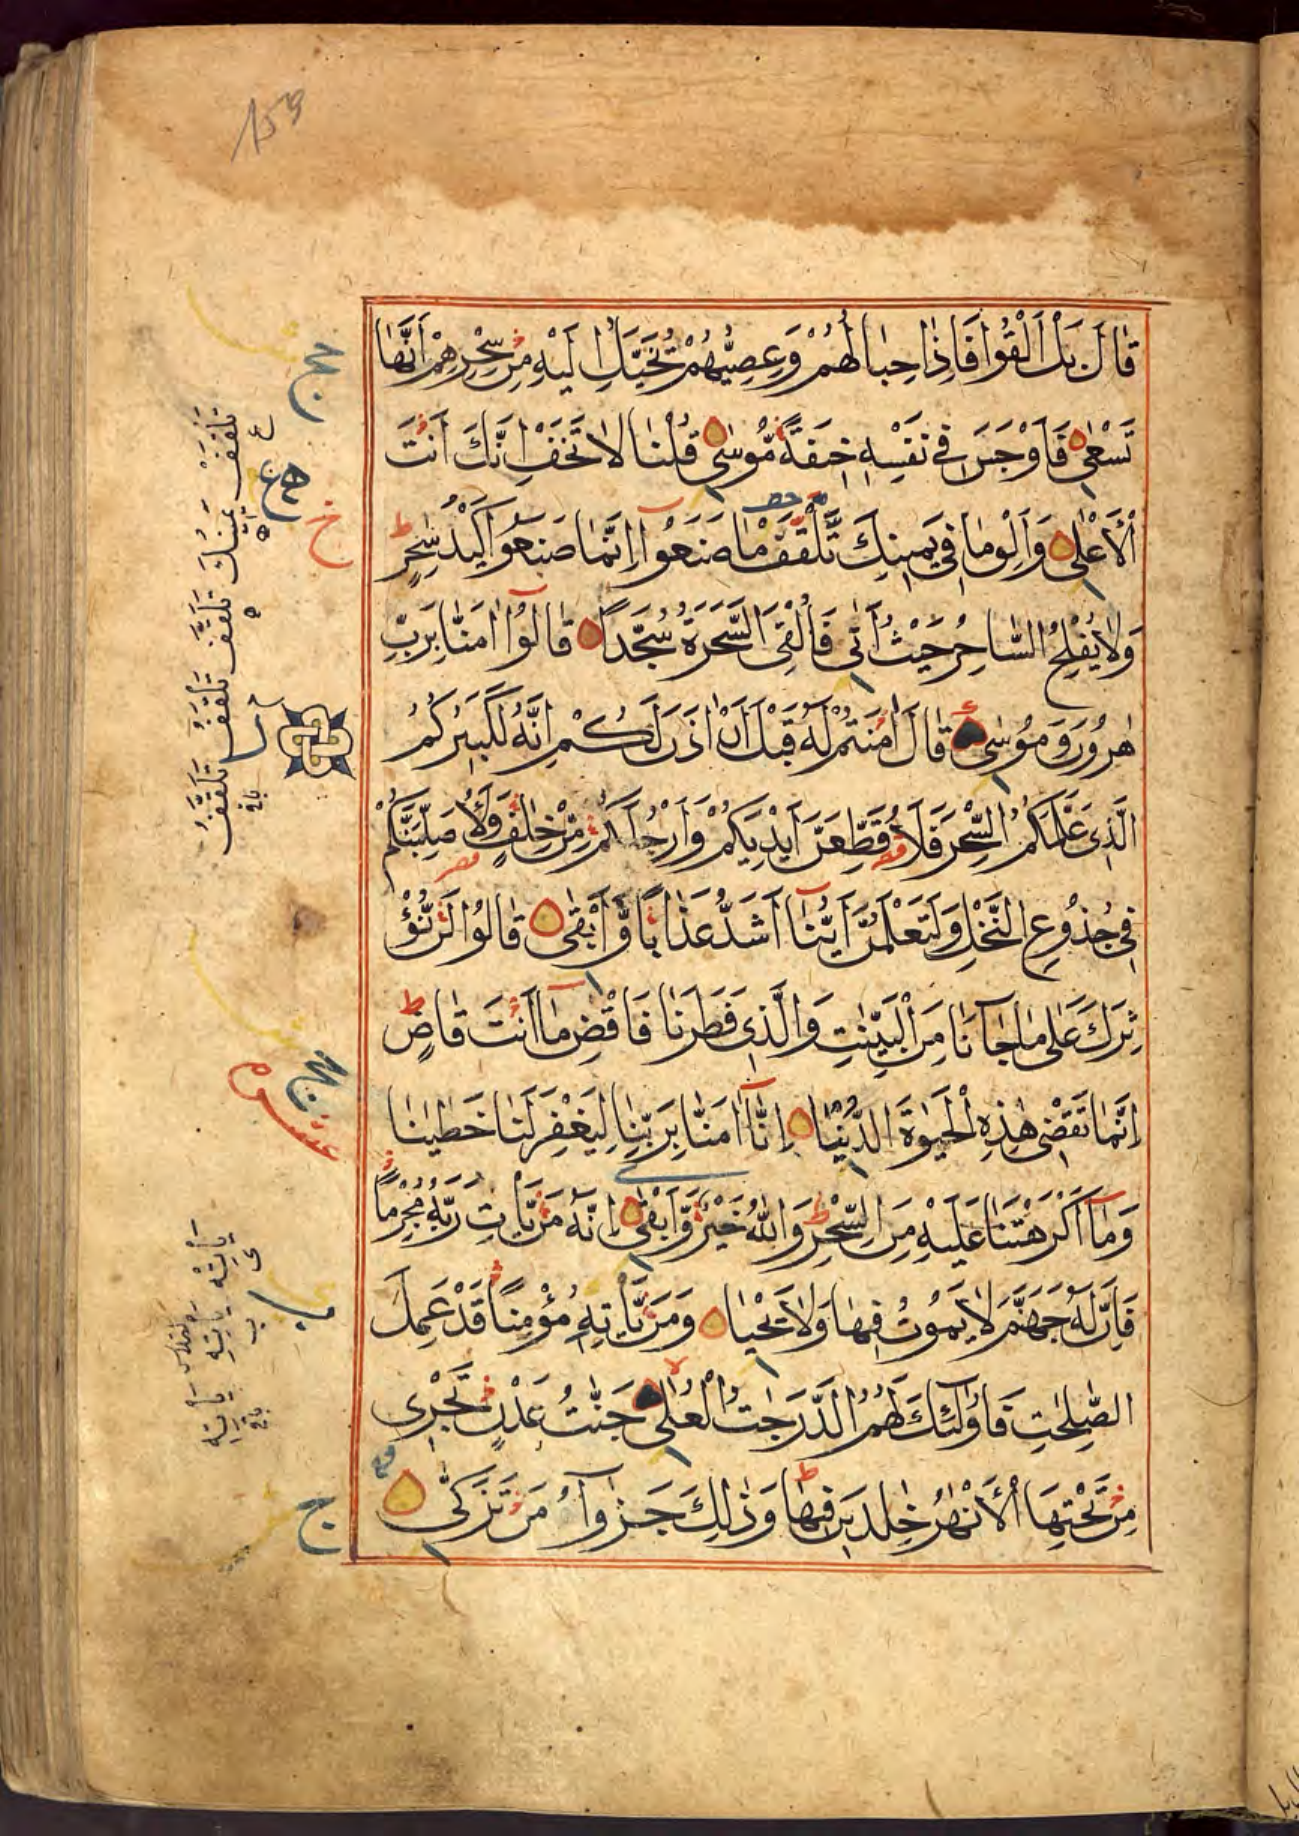 قَالَ بَلْ اَلْقُوا فَاِذَا حِبَالُهُمْ وَعِصِيُّهُمْ يُخَيَّلُ اِلَيْهِ مِنْ سِحْرِهِمْ اَنَّهَا
تَسْعٰى فَاَوْجَسَ فِى نَفْسِهٖ خِيفَةً مُوسٰى قُلْنَا لَا تَخَفْ اِنَّكَ اَنْتَ
الْاَعْلٰى وَاَلْقِ مَا فِى يَمِينِكَ تَلْقَفْ مَا صَنَعُوا اِنَّمَا صَنَعُوا كَيْدُ سٰحِرٍ
وَلَا يُفْلِحُ السَّاحِرُ حَيْثُ اَتٰى فَاُلْقِىَ السَّحَرَةُ سُجَّدًا قَالُوا اٰمَنَّا بِرَبِّ
هٰرُونَ وَمُوسٰى قَالَ اٰمَنْتُمْ لَهُ قَبْلَ اَنْ اٰذَنَ لَكُمْ اِنَّهُ لَكَبِيرُكُمُ
الَّذِى عَلَّمَكُمُ السِّحْرَ فَلَاُقَطِّعَنَّ اَيْدِيَكُمْ وَاَرْجُلَكُمْ مِنْ خِلٰفٍ وَلَاُصَلِّبَنَّكُمْ
فِى جُذُوعِ النَّخْلِ وَلَتَعْلَمُنَّ اَيُّنَا اَشَدُّ عَذَابًا وَاَبْقٰى قَالُوا لَنْ نُؤْ
ثِرَكَ عَلٰى مَا جَآءَنَا مِنَ الْبَيِّنٰتِ وَالَّذِى فَطَرَنَا فَاقْضِ مَا اَنْتَ قَاضٍ
اِنَّمَا تَقْضِى هٰذِهِ الْحَيٰوةَ الدُّنْيَا اِنَّا اٰمَنَّا بِرَبِّنَا لِيَغْفِرَ لَنَا خَطٰيٰنَا
وَمَا اَكْرَهْتَنَا عَلَيْهِ مِنَ السِّحْرِ وَاللّٰهُ خَيْرٌ وَاَبْقٰى اِنَّهُ مَنْ يَأْتِ رَبَّهُ مُجْرِمًا
فَاِنَّ لَهُ جَهَنَّمَ لَا يَمُوتُ فِيهَا وَلَا يَحْيَا وَمَنْ يَأْتِهٖ مُؤْمِنًا قَدْ عَمِلَ
الصّٰلِحٰتِ فَاُولٰٓئِكَ لَهُمُ الدَّرَجٰتُ الْعُلٰى جَنّٰتُ عَدْنٍ تَجْرِى
مِنْ تَحْتِهَا الْاَنْهٰرُ خٰلِدِينَ فِيهَا وَذٰلِكَ جَزٰٓؤُا مَنْ تَزَكّٰى
تلقف يمينك تلقف تلقف تلقف
ياته ياته ياته